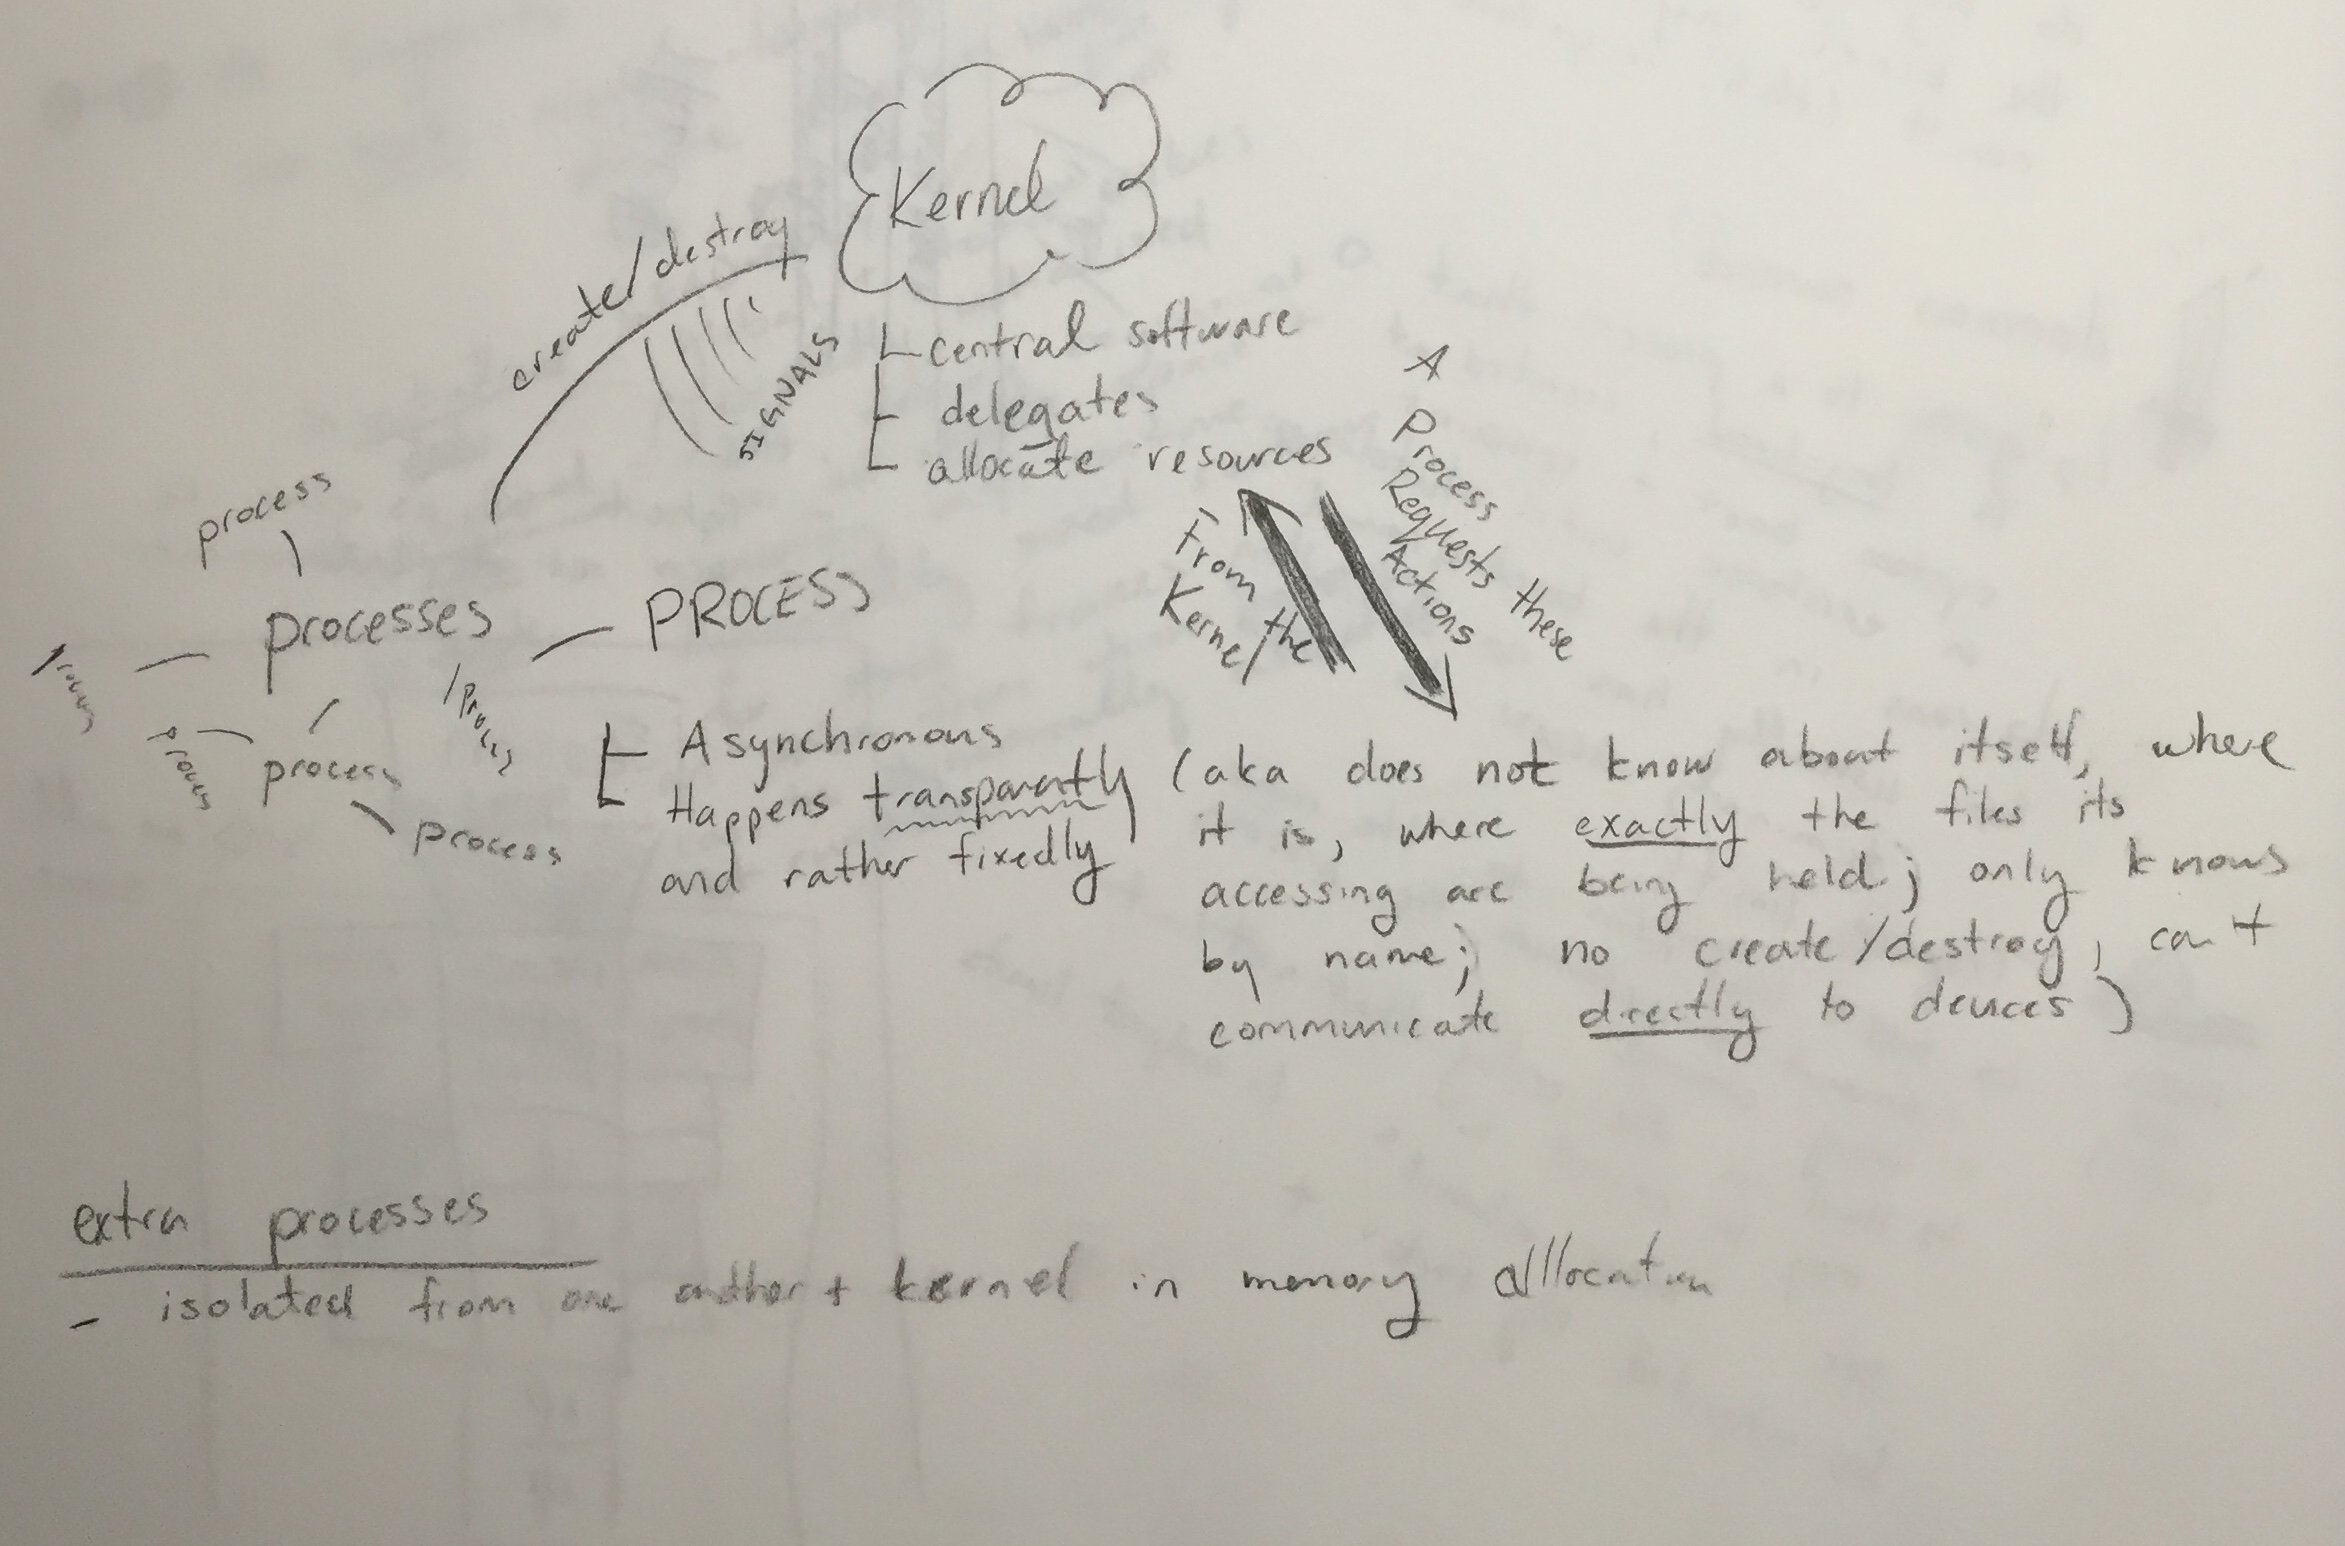 Kernel
create/destroy
SIGNALS
central software
delegates
allocate resources
A
Process
Requests these
Actions
From the
Kernel
process
processes
PROCESS
process
process
process
process
process
Asynchronous
Happens transparently
and rather fixedly
(aka does not know about itself, where
it is, where exactly the files its
accessing are being held; only knows
by name; no create/destroy, can't
communicate directly to devices)
extra processes
- isolated from one another + kernel in memory allocation